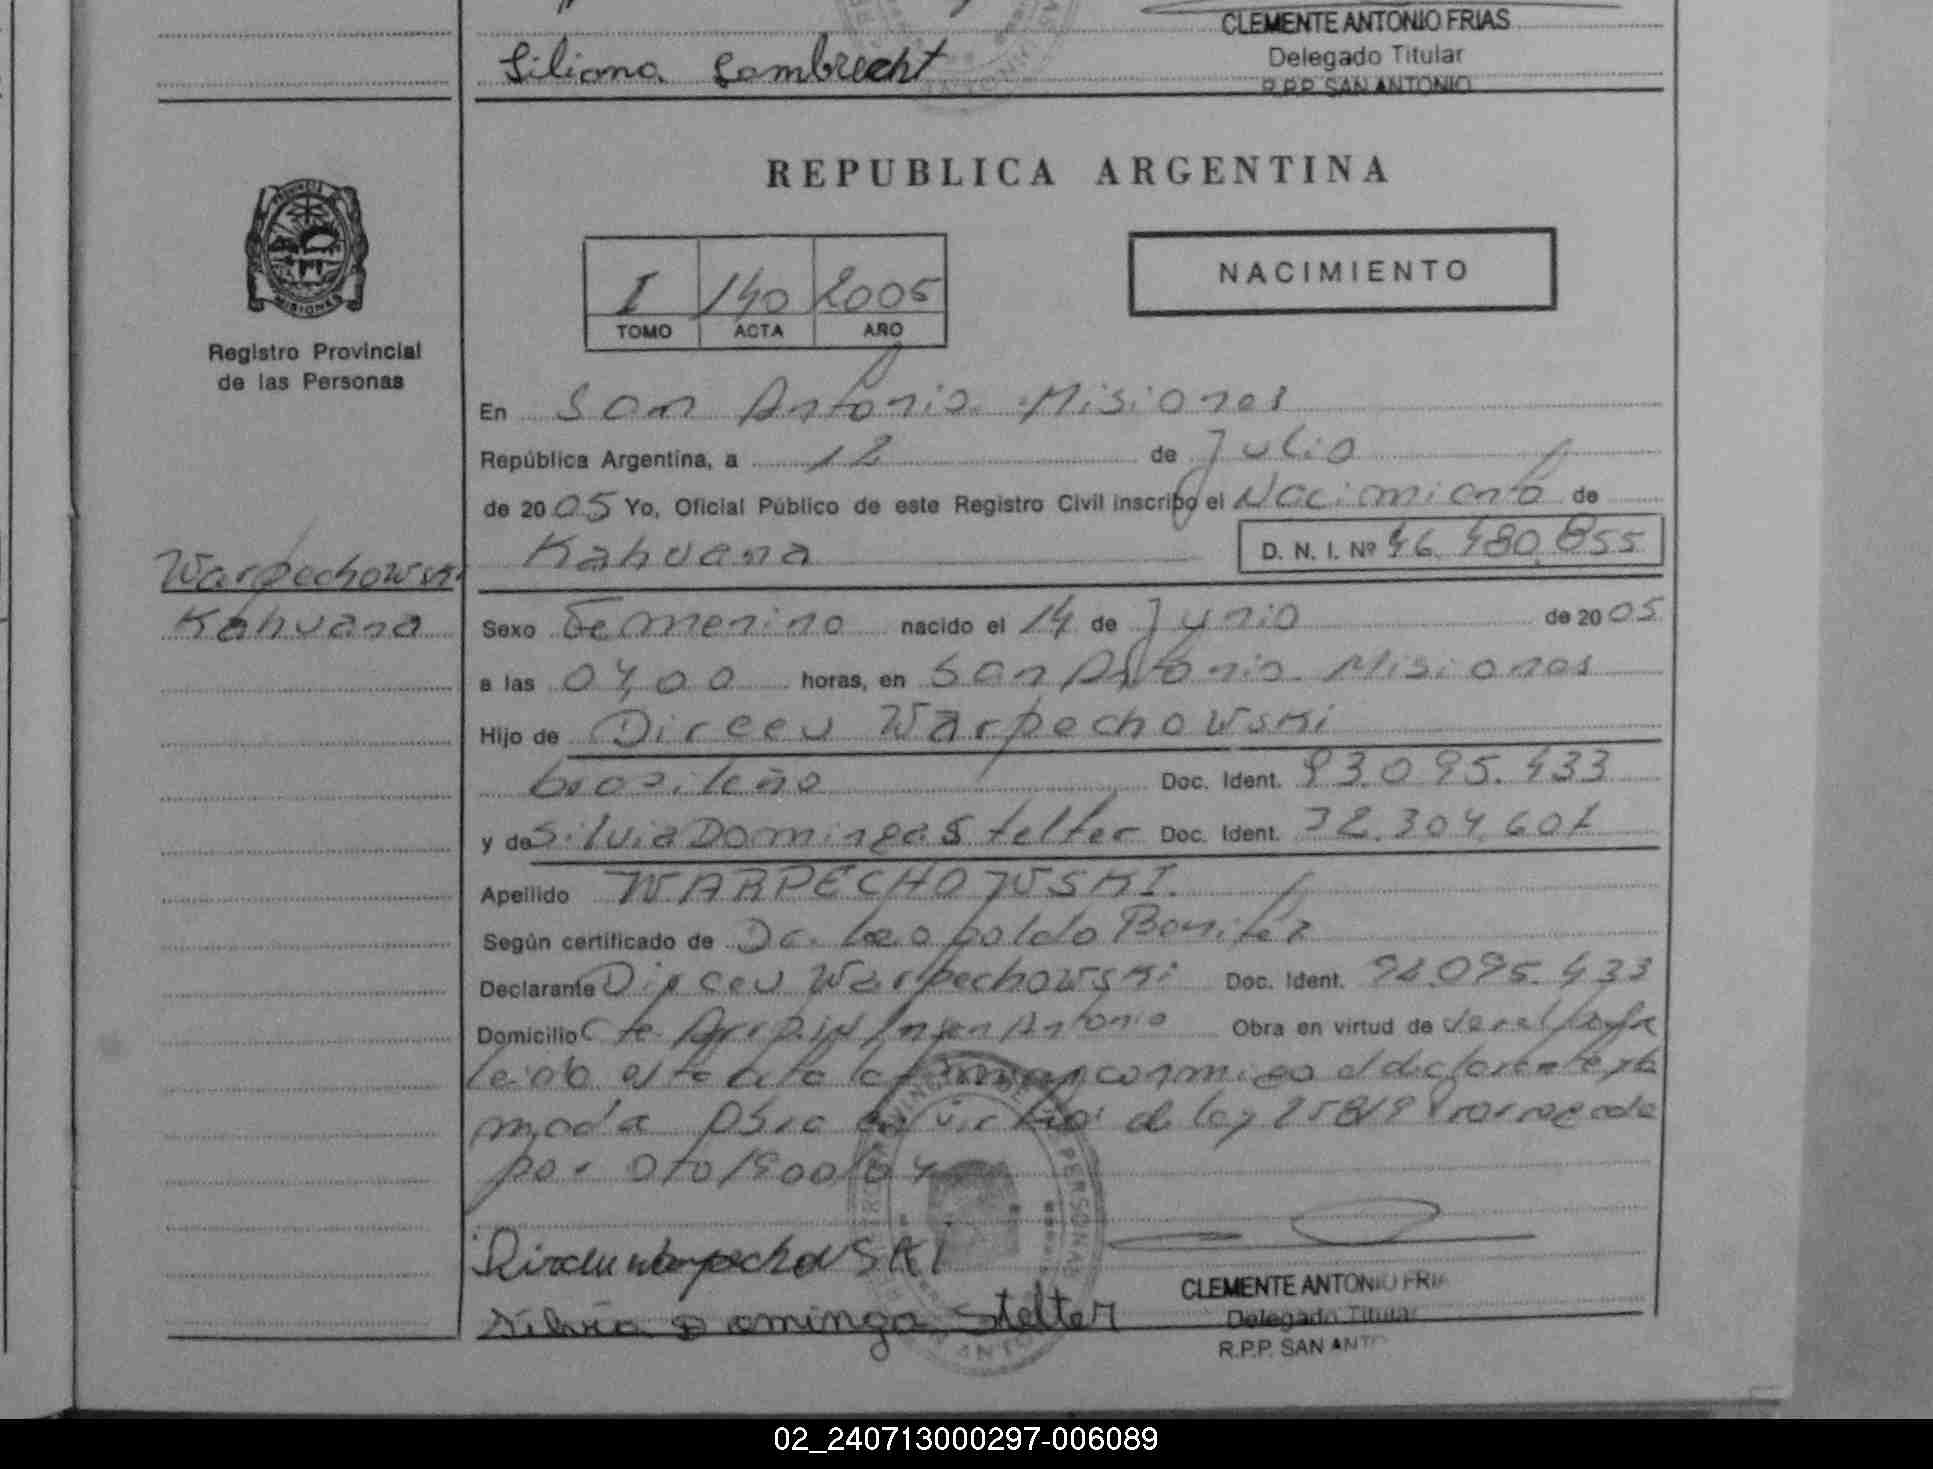 Liliana Lambrecht
CLEMENTE ANTONIO FRIAS
Delegado Titular
R.P.P. SAN ANTONIO
REPUBLICA ARGENTINA
PROVINCIA
MISIONES
Registro Provincial
de las Personas
I 140 2005
TOMO ACTA AÑO
NACIMIENTO
En San Antonio. Misiones
República Argentina, a 12 de Julio
de 2005 Yo, Oficial Público de este Registro Civil inscribo el Nacimiento de
Kahuana D. N. I. Nº 46.480.855
Warpechowski
Kahuana
Sexo Femenino nacido el 14 de Junio de 2005
a las 04,00 horas, en San Antonio. Misiones
Hijo de Dirceu Warpechowski
brasileño Doc. Ident. 93.095.433
y de Silvia Dominga Stelter Doc. Ident. 32.304.601
Apellido WARPECHOWSKI.
Según certificado de Dr. Leopoldo Benitez
Declarante Dirceu Warpechowski Doc. Ident. 94.095.433
Domicilio Cte. San Antonio Obra en virtud de
leida esta acta la firman conmigo el declarante
de ley 25819 Prorrogada
por Dto 1900/04
Dirceu Warpechowski
Silvia Dominga Stelter
CLEMENTE ANTONIO FRIA
Delegado Titular
R.P.P. SAN ANTO
02_240713000297-006089